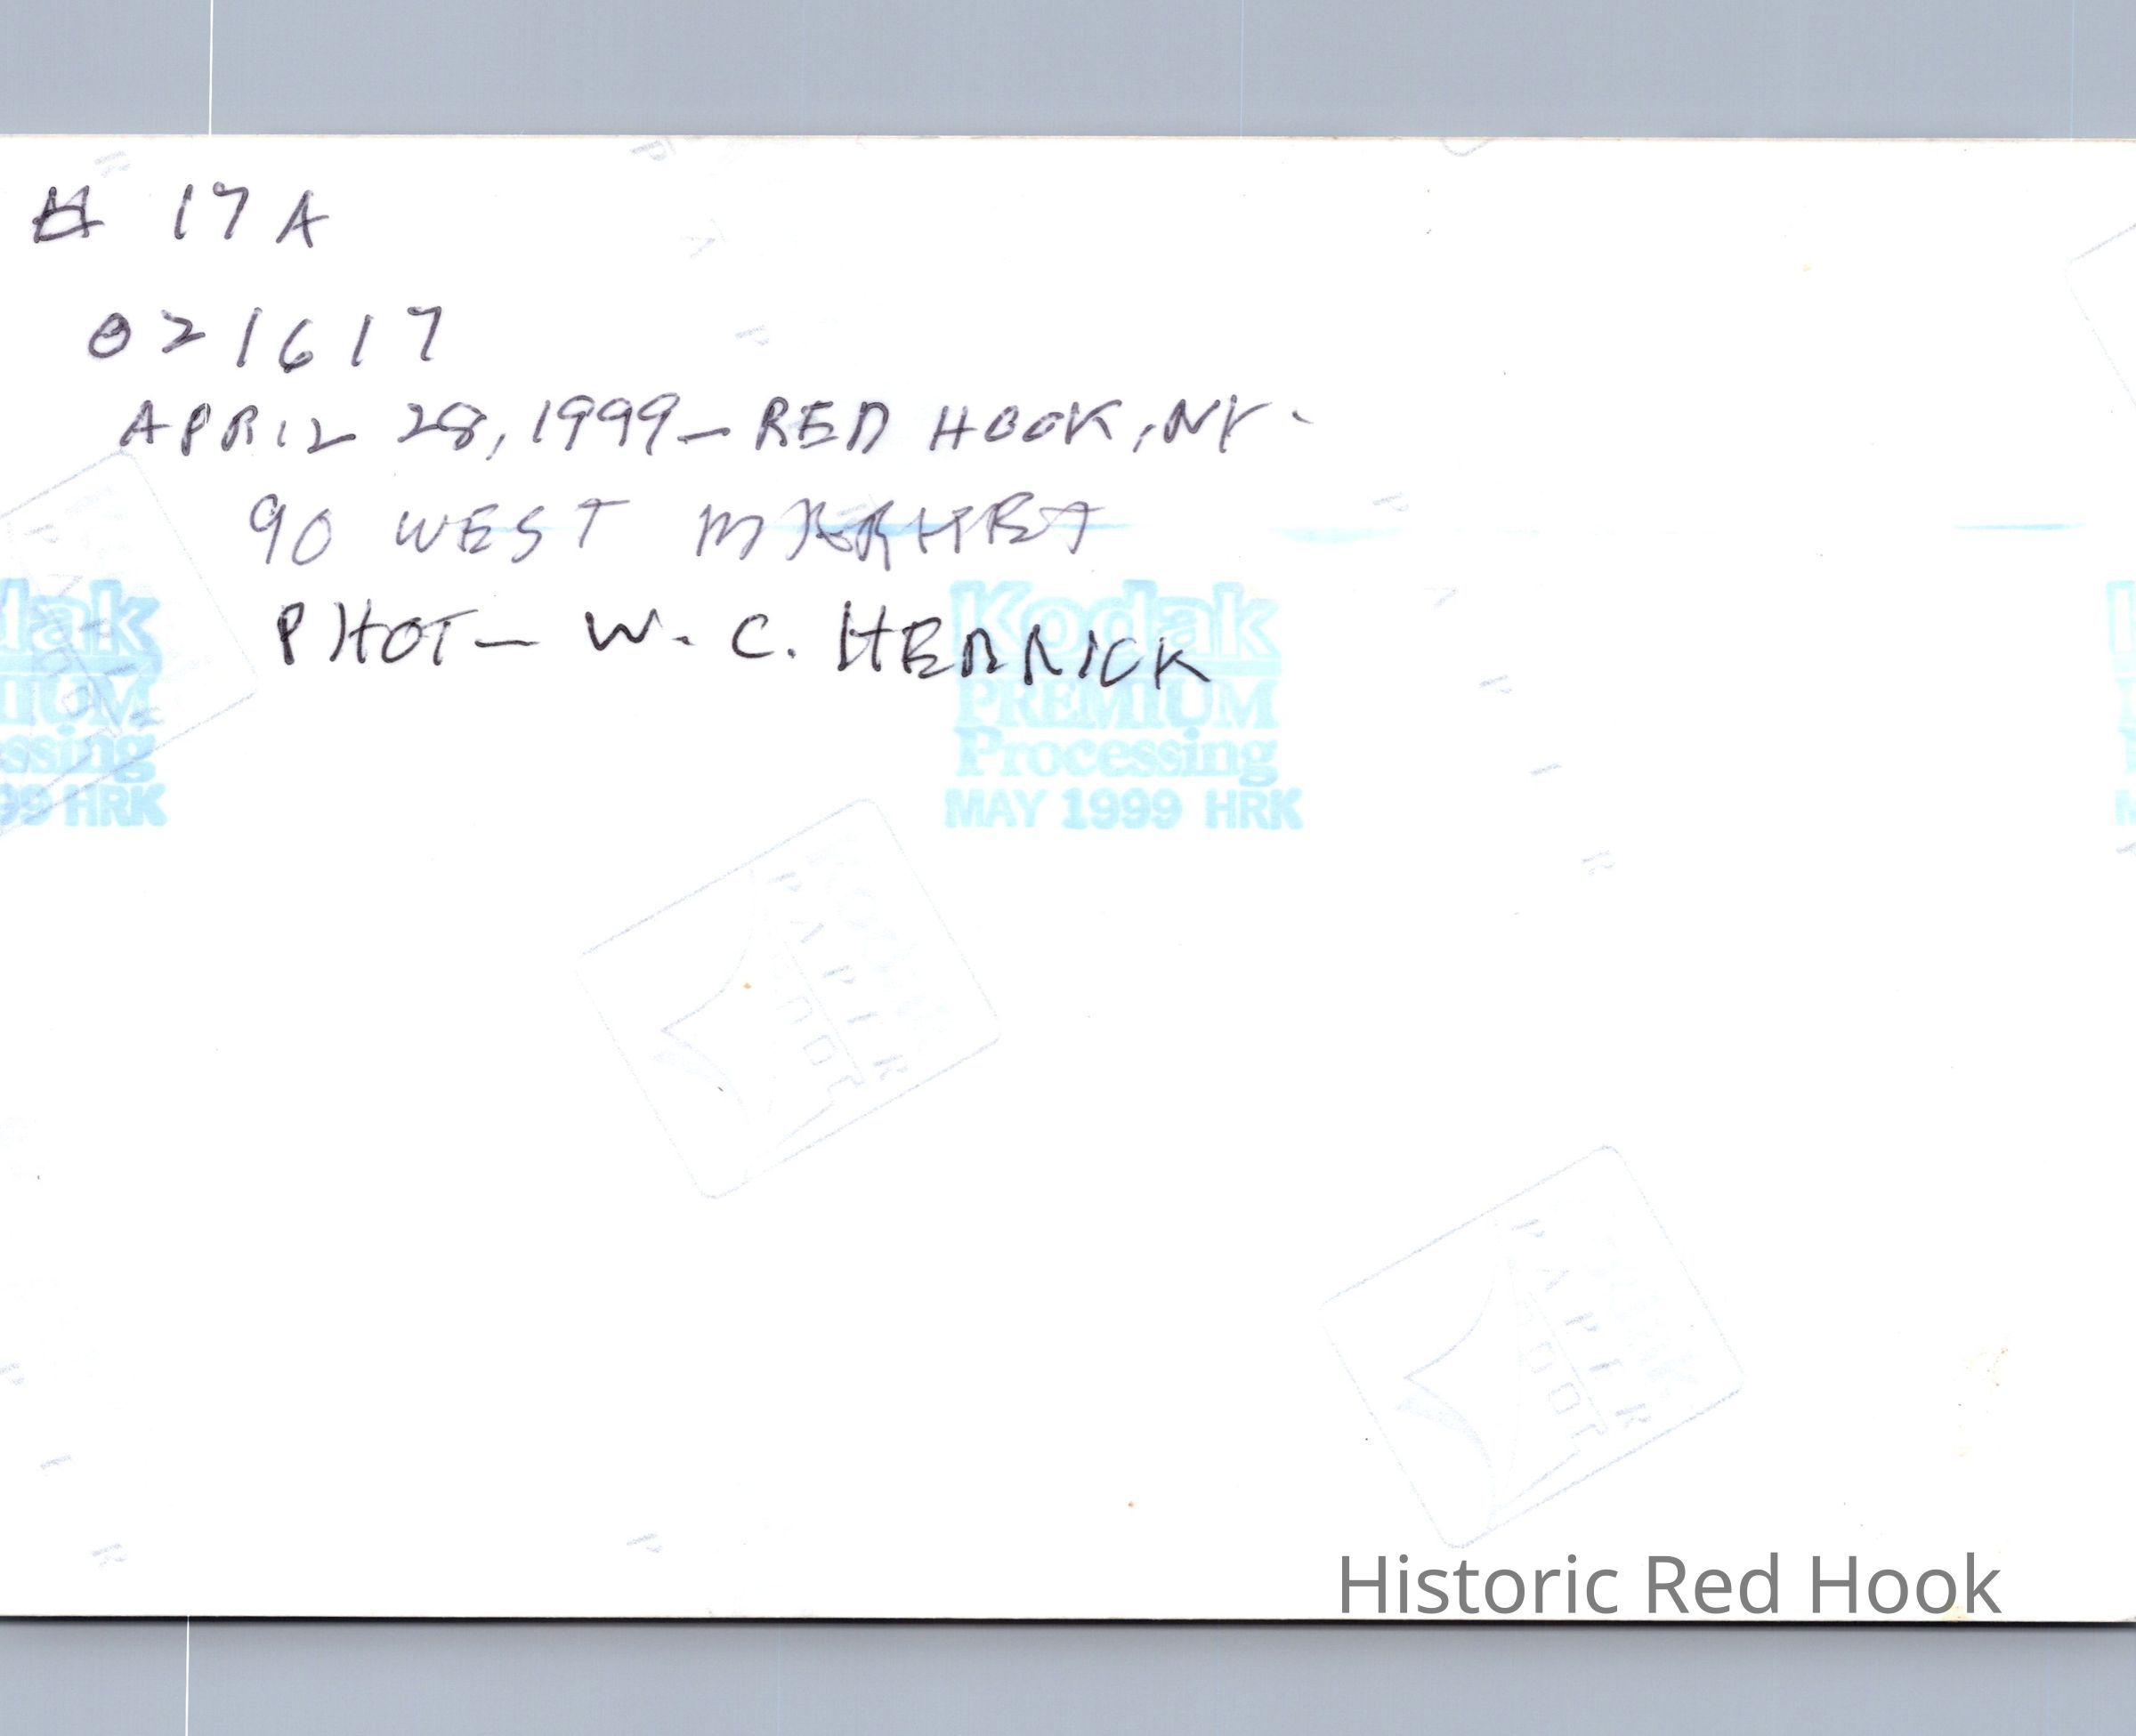 # 17A
021617
APRIL 28, 1999 - RED HOOK, NY.
90 WEST MARKET
PHOT - W. C. HERRICK
dak
IUM
ssing
99 HRK
Kodak
PREMIUM
Processing
MAY 1999 HRK
Kodak
PAPIER
PAPIER
Historic Red Hook